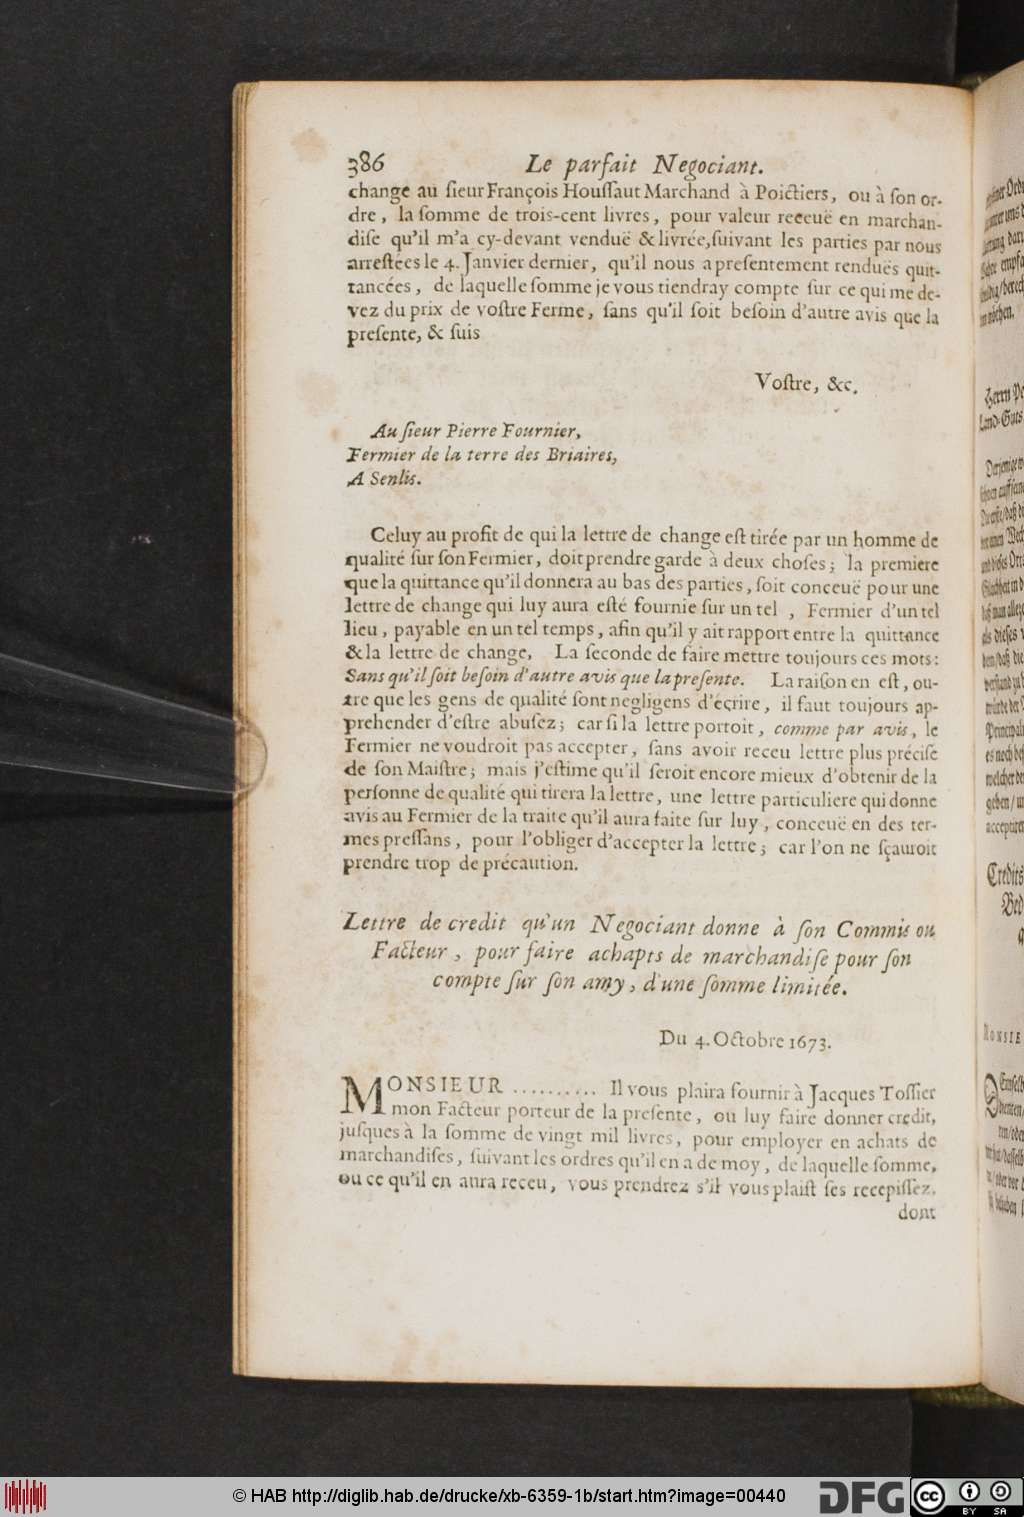 386 Le parfait Negociant.
change au ſieur François Houſſaut Marchand à Poictiers, ou à ſon or-
dre, la ſomme de trois-cent livres, pour valeur receuë en marchan-
diſe qu'il m'a cy-devant venduë & livrée, ſuivant les parties par nous
arreſtées le 4. Janvier dernier, qu'il nous a preſentement renduës quit-
tancées, de laquelle ſomme je vous tiendray compte ſur ce qui me de-
vez du prix de voſtre Ferme, ſans qu'il ſoit beſoin d'autre avis que la
preſente, & ſuis
Voſtre, &c.
Au ſieur Pierre Fournier,
Fermier de la terre des Briaires,
A Senlis.
Celuy au profit de qui la lettre de change eſt tirée par un homme de
qualité ſur ſon Fermier, doit prendre garde à deux choſes; la premiere
que la quittance qu'il donnera au bas des parties, ſoit conceuë pour une
lettre de change qui luy aura eſté fournie ſur un tel, Fermier d'un tel
lieu, payable en un tel temps, afin qu'il y ait rapport entre la quittance
& la lettre de change, La ſeconde de faire mettre toujours ces mots:
Sans qu'il ſoit beſoin d'autre avis que la preſente. La raiſon en eſt, ou-
tre que les gens de qualité ſont negligens d'écrire, il faut toujours ap-
prehender d'eſtre abuſez; car ſi la lettre portoit, comme par avis, le
Fermier ne voudroit pas accepter, ſans avoir receu lettre plus préciſe
de ſon Maiſtre; mais j'eſtime qu'il ſeroit encore mieux d'obtenir de la
perſonne de qualité qui tirera la lettre, une lettre particuliere qui donne
avis au Fermier de la traite qu'il aura faite ſur luy, conceuë en des ter-
mes preſſans, pour l'obliger d'accepter la lettre; car l'on ne ſçauroit
prendre trop de précaution.
Lettre de credit qu'un Negociant donne à ſon Commis ou
Facteur, pour faire achapts de marchandiſe pour ſon
compte ſur ſon amy, d'une ſomme limitée.
Du 4. Octobre 1673.
MONSIEUR .......... Il vous plaira fournir à Jacques Toſſier
mon Facteur porteur de la preſente, ou luy faire donner credit,
juſques à la ſomme de vingt mil livres, pour employer en achats de
marchandiſes, ſuivant les ordres qu'il en a de moy, de laquelle ſomme,
ou ce qu'il en aura receu, vous prendrez s'il vous plaiſt ſes recepiſſez,
dont
© HAB http://diglib.hab.de/drucke/xb-6359-1b/start.htm?image=00440
DFG
CC BY SA